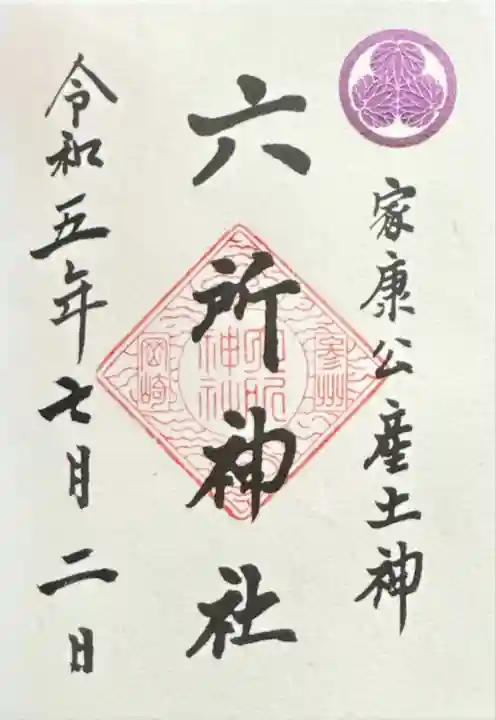 家康公産土神
六所神社
参州
六所
神社
岡崎
令和五年七月二日